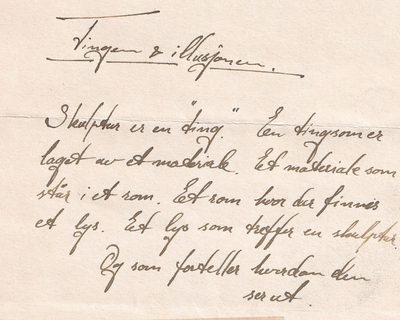 Tingen & illusjonen.
Skulptur er en "ting." En ting som er
laget av et materiale. Et materiale som
står i et rom. Et rom hvor der finnes
et lys. Et lys som treffer en skulptur.
Og som forteller hvordan den
ser ut.